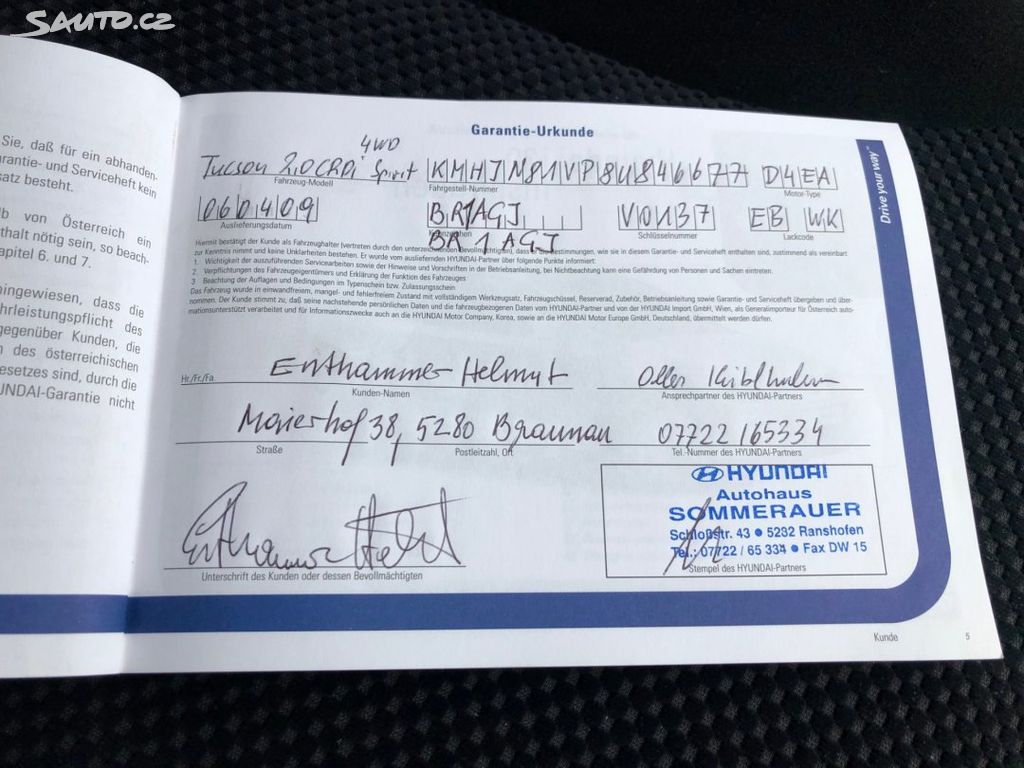 SAUTO.CZ
Sie, daß für ein abhanden.
rantie- und Serviceheft kein
satz besteht.
lb von Österreich ein
nthalt nötig sein, so beach-
apitel 6. und 7.
hingewiesen, dass die
hrleistungspflicht des
gegenüber Kunden, die
n des österreichischen
esetzes sind, durch die
UNDAI-Garantie nicht
Garantie-Urkunde
4WD
Tucson 2.0 CRDi Spirit KMHJN81VP8U846677 D4EA
Fahrzeug-Modell Fahrgestell-Nummer Motor-Type
060409 BR1AGJ V0137 EB WK
Auslieferungsdatum Kennzeichen Schlüsselnummer Lackcode
BR 1 AGJ
Hiermit bestätigt der Kunde als Fahrzeughalter (vertreten durch den unterzeichnenden Bevollmächtigten), dass die Bestimmungen, wie sie in diesem Garantie- und Serviceheft enthalten sind, zustimmend als vereinbart
zur Kenntnis nimmt und keine Unklarheiten bestehen. Er wurde vom ausliefernden HYUNDAI-Partner über folgende Punkte informiert:
1. Wichtigkeit der auszuführenden Servicearbeiten sowie der Hinweise und Vorschriften in der Betriebsanleitung, bei Nichtbeachtung kann eine Gefährdung von Personen und Sachen eintreten.
2. Verpflichtungen des Fahrzeugeigentümers und Erklärung der Funktion des Fahrzeuges
3 Beachtung der Auflagen und Bedingungen im Typenschein bzw. Zulassungsschein
Das Fahrzeug wurde in einwandfreiem, mangel- und fehlerfreiem Zustand mit vollständigem Werkzeugsatz, Fahrzeugschüssel, Reserverad, Zubehör, Betriebsanleitung sowie Garantie- und Serviceheft übergeben und über-
nommen. Der Kunde stimmt zu, daß seine nachstehende persönlichen Daten und die fahrzeugbezogenen Daten vom HYUNDAI-Partner und von der HYUNDAI Import GmbH, Wien, als Generalimporteur für Österreich auto-
mationsunterstützt verarbeitet und für Informationszwecke auch an die HYUNDAI Motor Company, Korea, sowie an die HYUNDAI Motor Europe GmbH, Deutschland, übermittelt werden dürfen.
Hr./Fr./Fa. Enthammer Helmut
Kunden-Namen Ansprechpartner des HYUNDAI-Partners
Maierhof 38, 5280 Braunau 07722 / 65334
Straße Postleitzahl, Ort Tel.-Nummer des HYUNDAI-Partners
HYUNDAI
Autohaus
SOMMERAUER
Schloßstr. 43 ● 5282 Ranshofen
Tel.: 07722 / 65 334 ● Fax DW 15
Enthammer Helmut
Unterschrift des Kunden oder dessen Bevollmächtigten Stempel des HYUNDAI-Partners
Drive your way™
Kunde 5